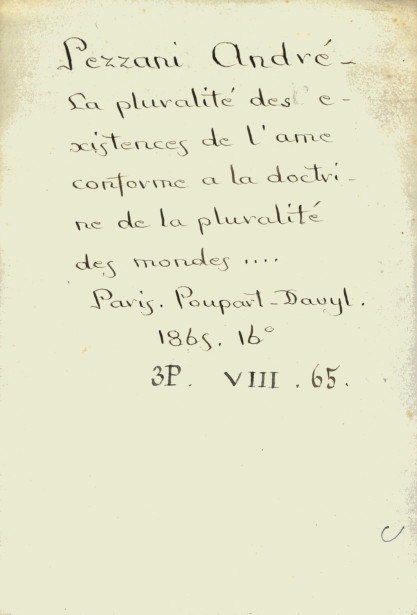 Pezzani André -
La pluralité des e -
xistences de l'ame
conforme a la doctri -
ne de la pluralité
des mondes ....
Paris. Poupart-Davyl.
1865. 16°
3P. VIII. 65.